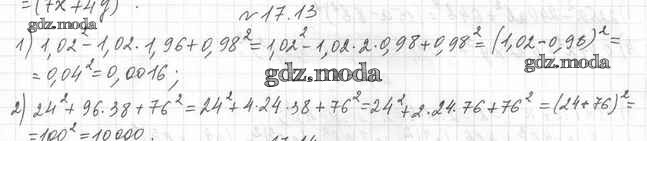 = (7x+4y) .
gdz.moda
№17.13
1) 1,02² - 1,02 · 1,96 + 0,98² = 1,02² - 1,02 · 2 · 0,98 + 0,98² = (1,02 - 0,98)² =
gdz.moda
= 0,04² = 0,0016 ;
gdz.moda
2) 24² + 96 · 38 + 76² = 24² + 4 · 24 · 38 + 76² = 24² + 2 · 24 · 76 + 76² = (24 + 76)² =
= 100² = 10000 .
17.14